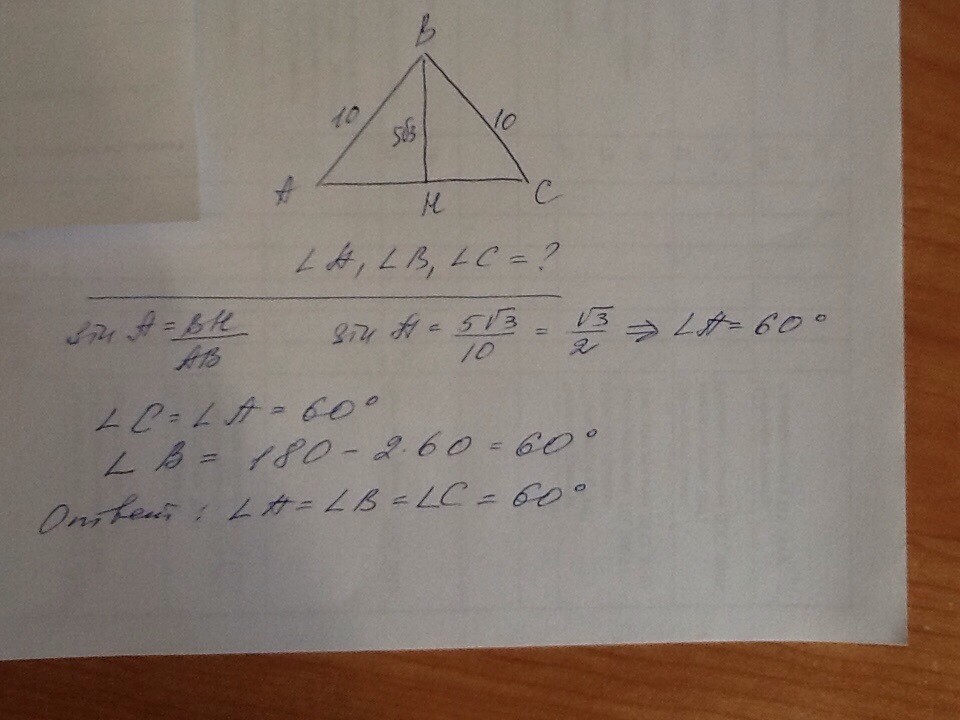 B
10 5√3 10
A H C
∠A, ∠B, ∠C = ?
sin A = BH/AB sin A = 5√3/10 = √3/2 ⇒ ∠A = 60°
∠C = ∠A = 60°
∠B = 180 - 2·60 = 60°
Ответ: ∠A = ∠B = ∠C = 60°